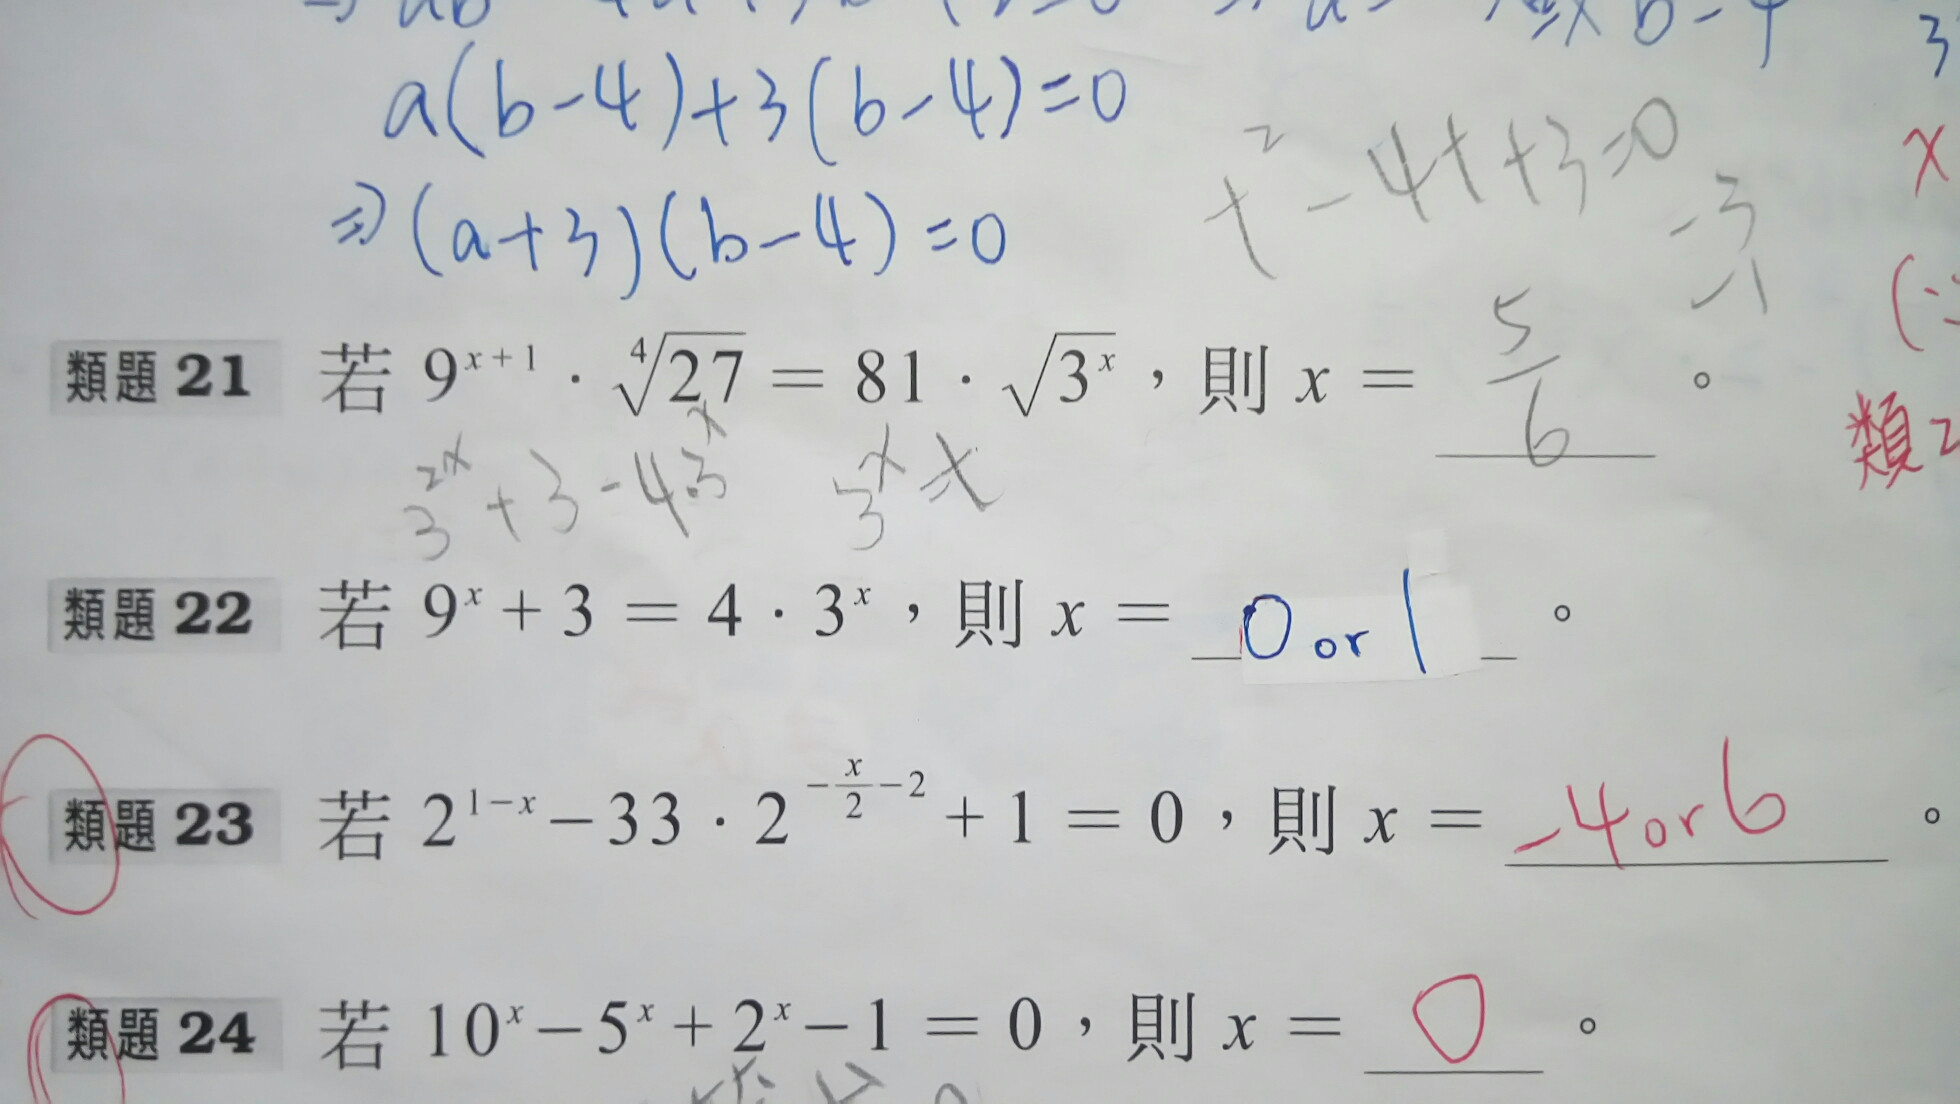 a(b-4)+3(b-4)=0
t²-4t+3=0
-3
-1
⇒(a+3)(b-4)=0
類題 21 若 9^{x+1} · ∜27 = 81 · √(3^x)，則 x = 5/6 。
類2
3^{2x}+3-4·3^x 3^x=t
類題 22 若 9^x + 3 = 4 · 3^x，則 x = 0 or 1 。
類題 23 若 2^{1-x} - 33 · 2^{-x/2-2} + 1 = 0，則 x = -4 or 6 。
類題 24 若 10^x - 5^x + 2^x - 1 = 0，則 x = 0 。